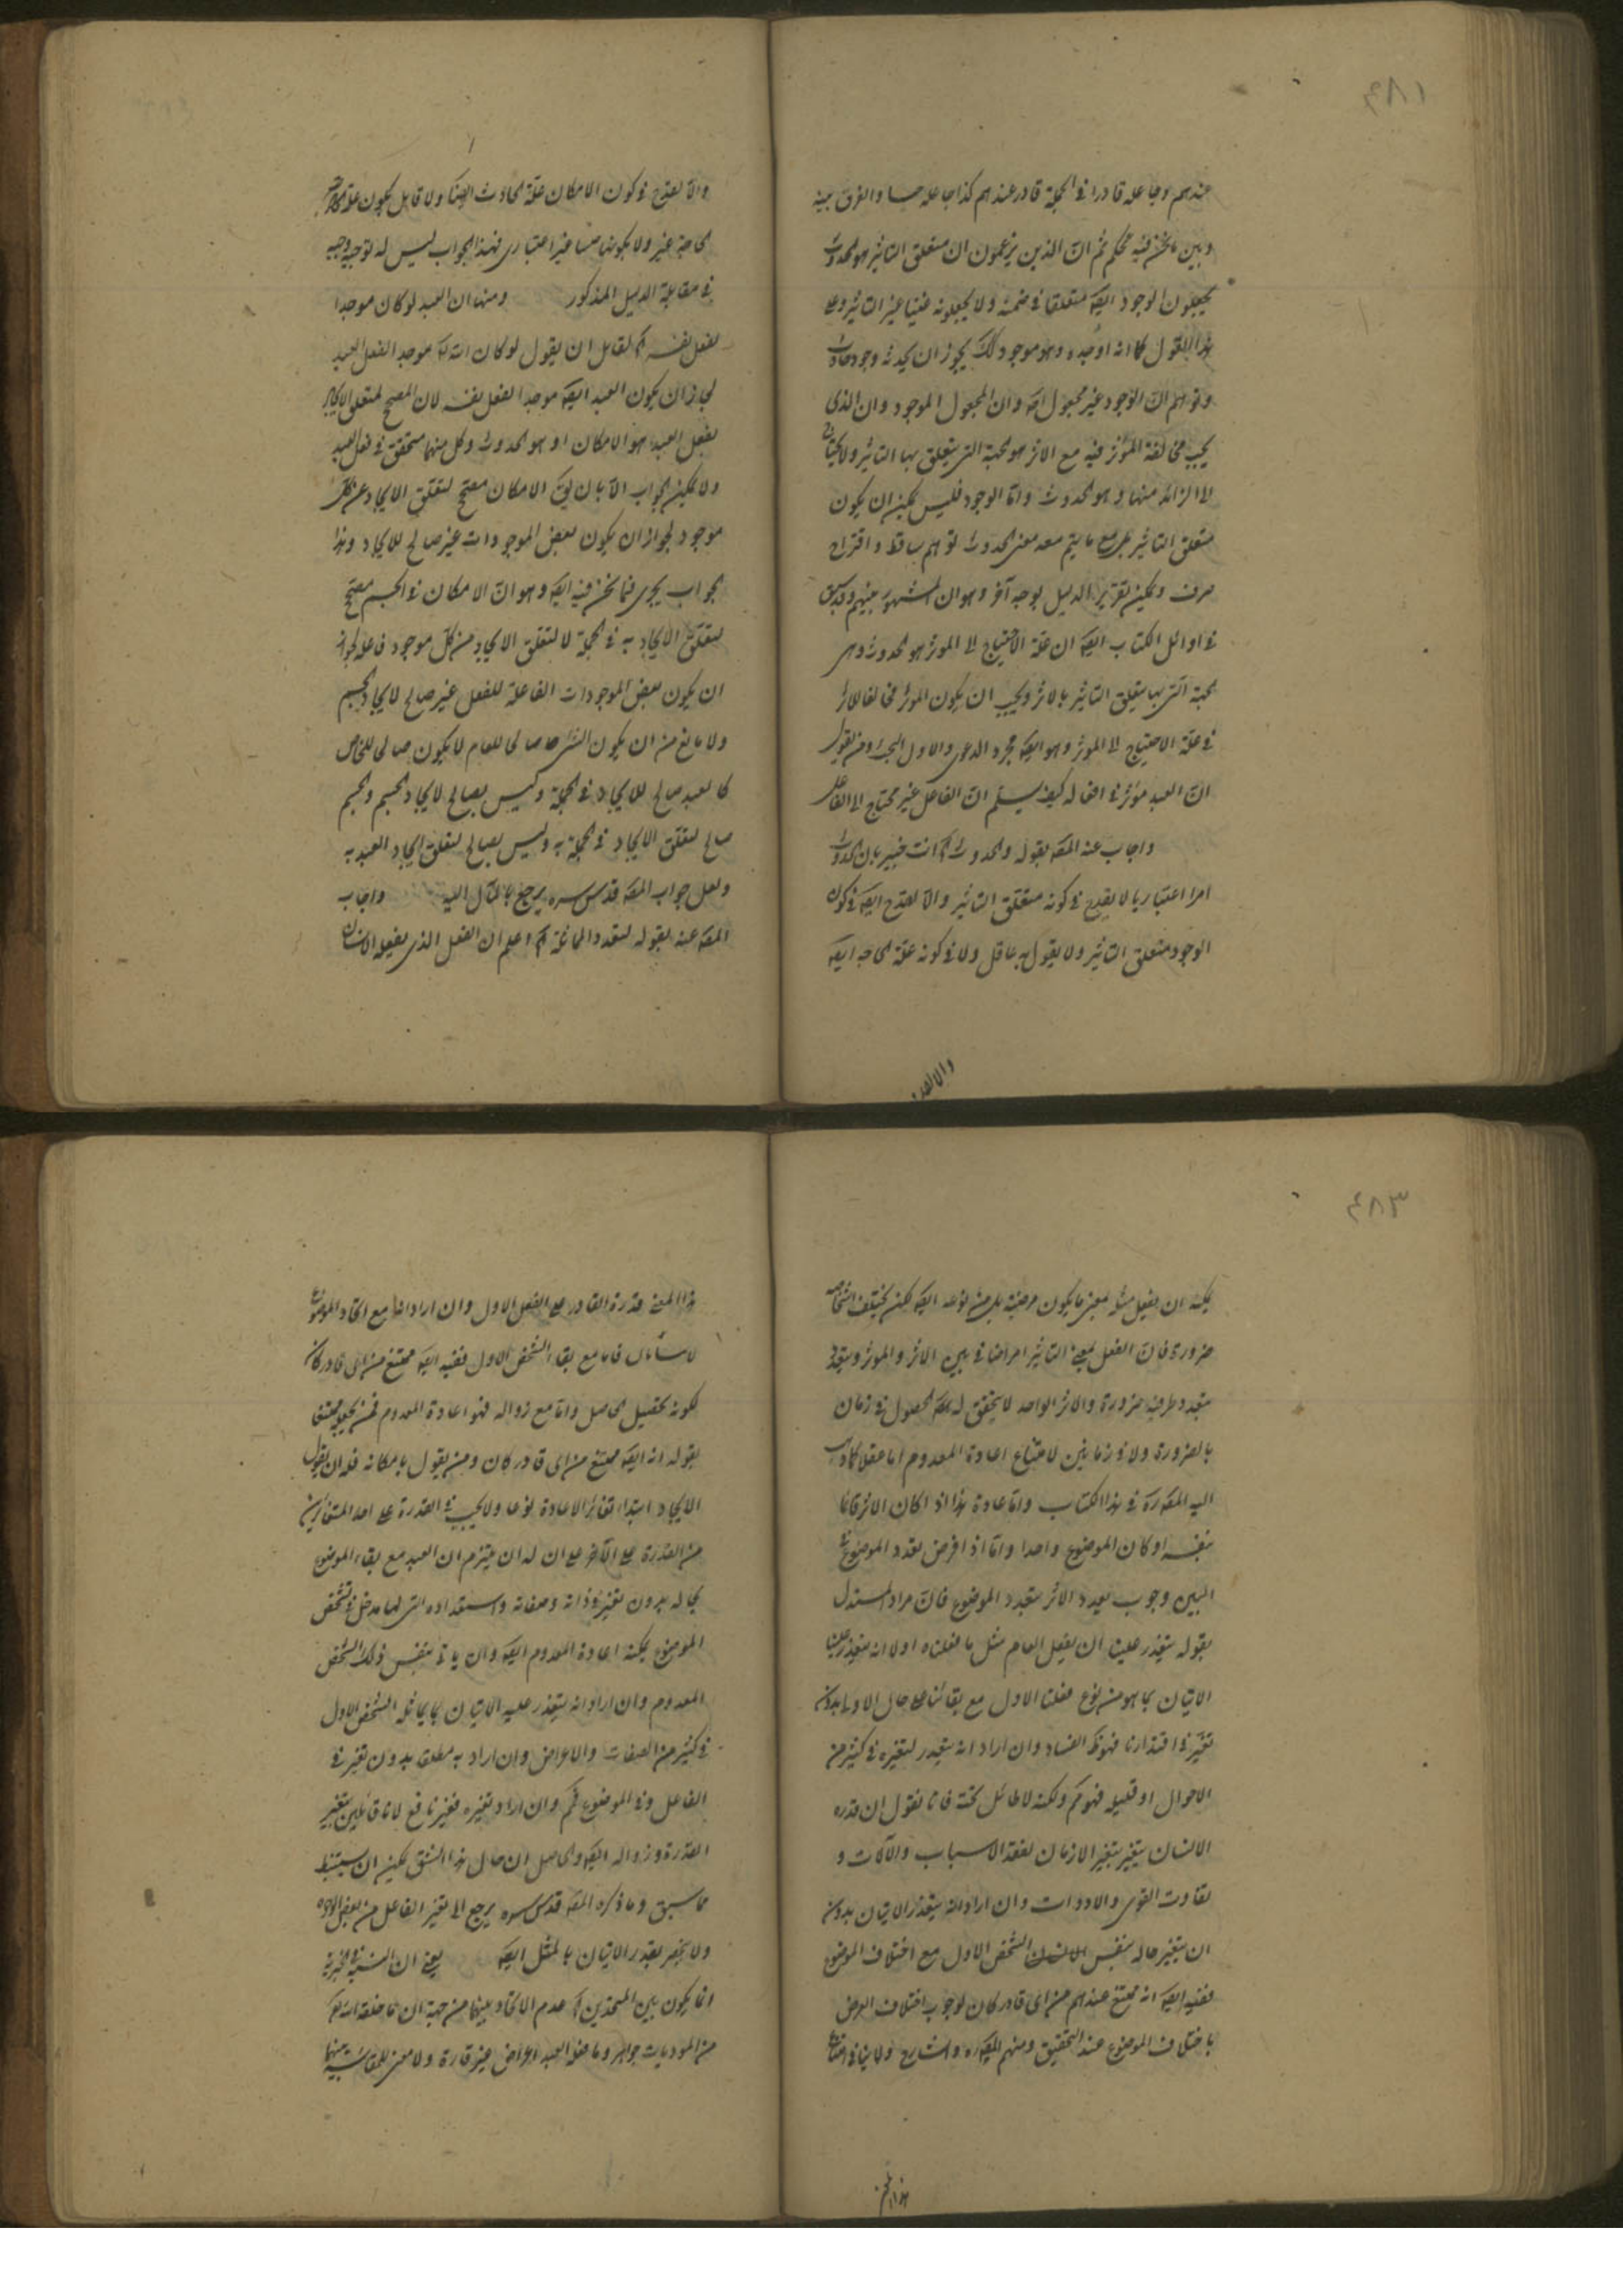 ٤٨١
عندهم وجاعله قادرا في الجملة قادر عندهم كذا جاعله حسا والفرق بينه
وبين ما نحن فيه تحكم ثم ان الذين يزعمون ان متعلق التاثير هو الحدوث
يجعلون الوجود ايضه متعلقا في ضمنه ولا يجعلونه غنيا عن التاثير وعلى
هذا القول كما انه اوجده وهو موجود كك يجوز ان يحدث وجود حادث
وتوهم ان الوجود غير مجعول ايضه وان المجعول الموجود وان الذي
يجب مخالفة المؤثر فيه مع الاثر هو الجهة التي يتعلق بها التاثير ولا يحتاج
الا الزائد منها وهو الحدوث واما الوجود فليس يمكن ان يكون
متعلق التاثير مع ما يتم معه معنى الحدوث توهم ساقط واقتراح
صرف ويمكن تقرير الدليل بوجه آخر وهو ان المشهور بينهم وقد سبق
في اوائل الكتاب ايضه ان علة الاحتياج الى المؤثر هو الحدوث وهي
الجهة التي بها يتعلق التاثير بالاثر ويجب ان يكون المؤثر مخالفا للاثر
في علة الاحتياج الى المؤثر وهو ايضه مجرد الدعوى والاول البحث ومن يقول
ان العبد مؤثر في افعاله كيف يسلم ان الفاعل غير محتاج الى الفاعل
واجاب عنه المصه بقوله والحدوث آه انت خبير بان الحدوث
امرا اعتباريا لا يقدح في كونه متعلق التاثير والا لقدح ايضه في كون
الوجود متعلق التاثير ولا يقول به عاقل ولا في كونه علة الحاجه ايضه
والا لقدح
والا لقدح في كون الامكان علة الحادث ايضا ولا قابل بكون علة
الحاجة غير ولا بكونها حسا غير اعتباري فهذا الجواب ليس له توجيه وجيه
في مقابلة الدليل المذكور ومنها ان العبد لو كان موجدا
لفعل نفسه آه لقائل ان يقول لو كان الله تعه موجد الفعل العبد
لجاز ان يكون العبد ايضه موجد الفعل نفسه لان المصحح لتعلق الايجاد
بفعل العبد هو الامكان او هو الحدوث وكل منهما متحقق في فعل العبد
ولا يمكن الجواب الا بان يق الامكان مصحح لتعلق الايجاد عن كل
موجود لجواز ان يكون بعض الموجودات غير صالح للايجاد وهذا
الجواب يجري فيما نحن فيه ايضه وهو ان الامكان في الجسم مصحح
لتعلق الايجاد به في الجملة لا لتعلق الايجاد من كل موجود فاعله لجواز
ان يكون بعض الموجودات الفاعلة للفعل غير صالح لايجاد الجسم
ولا مانع من ان يكون الشئ صالحا للعام لا يكون صالحا للخاص
كالعبد صالح للايجاد في الجملة وليس بصالح لايجاد الجسم والجسم
صالح لتعلق الايجاد في الجملة به وليس بصالح لتعلق ايجاد العبد به
ولعل جواب المصه قدس سره يرجع بالمآل اليه واجاب
المصه عنه بقوله لتعدد المماثلة آه اعلم ان الفعل الذي يفعله الانسان
٤٨٣
يمكنه ان يفعل مثله بمعنى ما يكون من نوعه ايضه لكن يختلف اشخاصه
ضرورة فان الفعل بمعنى التاثير امر اضافي بين الاثر والمؤثر ويتعدد
بتعدد طرفيه ضرورة والاثر الواحد لا يتحقق له الحصول في زمان
بالضرورة ولا في زمانين لامتناع اعادة المعدوم اما عقلا كما ذهب
اليه المصه ره في هذا الكتاب واما عادة هذا اذا كان الاثر قائما
بنفسه او كان الموضوع واحدا واما اذا فرض تعدد الموضوع
البين وجوب تعدد الاثر بتعدد الموضوع فان مراد المستدل
بقوله يتعذر علينا ان يفعل العام مثل ما فعلناه اولا انه يتعذر علينا
الاتيان بما هو من نوع فعلنا الاول مع بقائنا على حال الاولى بدون
تغير في اقتدارنا فهو ظ الفساد وان اراد انه يتعذر لتغيره في كثير من
الاحوال او قليله فهو حم ولكنه لا طائل تحته فانا نقول ان قدره
الانسان يتغير بتغير الازمان لفقد الاسباب والآلات و
تفاوت القوى والادوات وان اراد انه يتعذر الاتيان بدون
ان يتغير حاله بنفس الشخص الاول مع اختلاف الموضوع
ففيه ايضه انه ممتنع عندهم من اي قادر كان لوجوب اختلاف العرض
باختلاف الموضوع عند التحقيق ومنهم المصه ره والشارح ولا ينافي امتناع
هذا المعنى قدرة القادر على الفعل الاول وان اراد انها مع اتحاد الموضوع
فاما مع بقاء الشخص الاول ففيه ايضه ممتنع من اي قادر كان
لكونه تحصيل الحاصل واما مع زواله فهو اعادة المعدوم فمن يجعله ممتنعا
يقوله انه ايضه ممتنع من اي قادر كان ومن يقول بامكانه فله ان يقول
الايجاد ابتداء تغاير الاعادة نوعا ولا يجب في القدرة على احد المتغايرين
من القدرة على الآخر على ان له ان يلتزم ان العبد مع بقاء الموضوع
بحاله بدون تغير في ذاته وصفاته واستعداده التي لها مدخل في تشخص
الموضوع يمكنه اعادة المعدوم ايضه وان ياتي بنفس ذلك الشخص
المعدوم وان اراد انه يتعذر عليه الاتيان بما يماثل الشخص الاول
في كثير من الصفات والاعراض وان اراد به مطلقا بدون تغير في
الفاعل وفي الموضوع فحم وان اراد بتغيره فغير نافع لانا قايلين بتغير
القدرة وزواله ايضه والحاصل ان حال هذا الشق يمكن ان يستنبط
مما سبق وما ذكره المصه قدس سره يرجع الى تغير الفاعل من بعض الوجوه
ولا يتعذر الاتيان بالمثل ايضه يعني ان النسبة في الخيرية
انما يكون بين المتحدين آه عدم الاتحاد بينهما من جهة ان ما خلقه الله تعه
من الموديات جواهر وما فعله العبد اعراض غير قارة ولا معنى للمقايسة بينهما